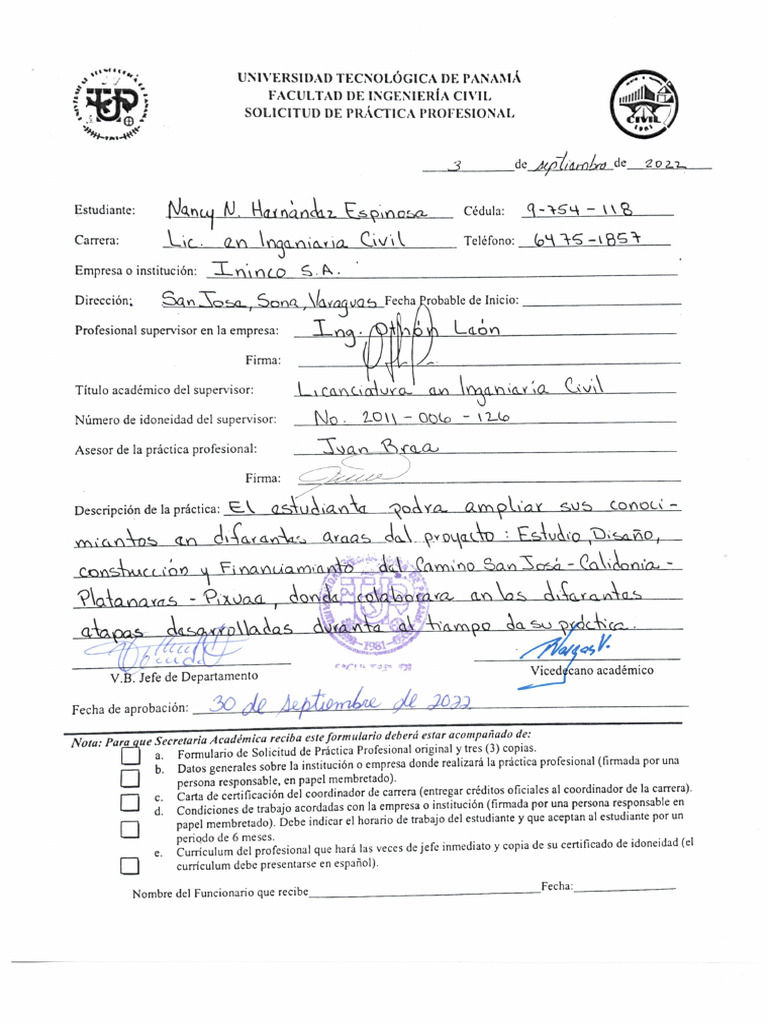 UNIVERSIDAD TECNOLÓGICA DE PANAMÁ
FACULTAD DE INGENIERÍA CIVIL
SOLICITUD DE PRÁCTICA PROFESIONAL
CIVIL
1981
3 de septiembre de 2022
Estudiante: Nancy N. Hernández Espinosa Cédula: 9-754-118
Carrera: Lic. en Ingenieria Civil Teléfono: 6475-1857
Empresa o institución: Ininco S.A.
Dirección: San Jose, Sona, Veraguas Fecha Probable de Inicio:
Profesional supervisor en la empresa: Ing. Othón León
Firma:
Título académico del supervisor: Licenciatura en Ingeniería Civil
Número de idoneidad del supervisor: No. 2011-006-126
Asesor de la práctica profesional: Juan Brea
Firma:
Descripción de la práctica: El estudiante podra ampliar sus conoci-
mientos en diferentes areas del proyecto: Estudio, Diseño,
construcción y Financiamiento del Camino San José-Calidonia-
Platanares-Pixvae, donde colaborara en las diferentes
etapas desarrolladas durante el tiempo de su práctica.
V.B. Jefe de Departamento
Vargas V.
Vicedecano académico
Fecha de aprobación: 30 de septiembre de 2022
Nota: Para que Secretaria Académica reciba este formulario deberá estar acompañado de:
a. Formulario de Solicitud de Práctica Profesional original y tres (3) copias.
b. Datos generales sobre la institución o empresa donde realizará la práctica profesional (firmada por una
persona responsable, en papel membretado).
c. Carta de certificación del coordinador de carrera (entregar créditos oficiales al coordinador de la carrera).
d. Condiciones de trabajo acordadas con la empresa o institución (firmada por una persona responsable en
papel membretado). Debe indicar el horario de trabajo del estudiante y que aceptan al estudiante por un
periodo de 6 meses.
e. Curriculum del profesional que hará las veces de jefe inmediato y copia de su certificado de idoneidad (el
currículum debe presentarse en español).
Nombre del Funcionario que recibe Fecha: